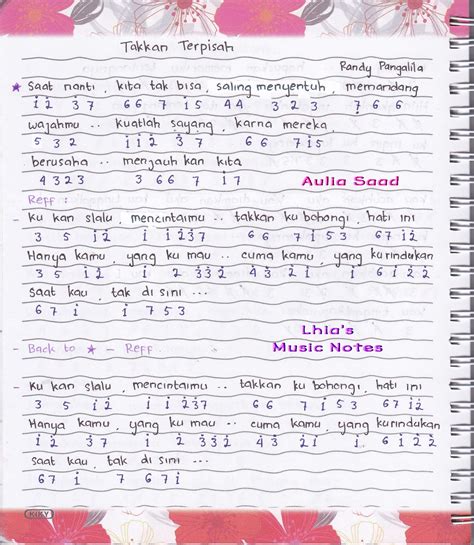 Takkan Terpisah
Randy Pangalila
★ Saat nanti, kita tak bisa, saling menyentuh, memandang
i 2 3 7 6 6 7 i 5 4 4 3 2 3 7 6 6
wajahmu .. kuatlah sayang, karna mereka,
5 3 2 i i 2 3 7 6 6 7 i 5
berusaha .. menjauh kan kita
4 3 2 3 3 6 6 7 i 7
Aulia Saad
Reff :
- Ku kan slalu, mencintaimu .. takkan ku bohongi, hati ini
3 5 i 2 i i 2 3 7 6 6 7 i 5 3 6 7 i 2
Hanya kamu, yang ku mau .. cuma kamu, yang kurindukan
3 5 i 2 i 2 3 3 2 4 3 2 i i 6 i 2 2
saat kau, tak di sini ...
6 7 i i 7 5 3
Lhia's
Music Notes
- Back to ★ - Reff
- Ku kan slalu, mencintaimu .. takkan ku bohongi, hati ini
3 5 i 2 i i 2 3 7 6 6 7 i 5 3 6 7 i 2
Hanya kamu, yang ku mau .. cuma kamu, yang kurindukan
3 5 i 2 i 2 3 3 2 4 3 2 i i 6 i 2 2
saat kau, tak di sini ...
6 7 i 7 6 7 i
KIKY